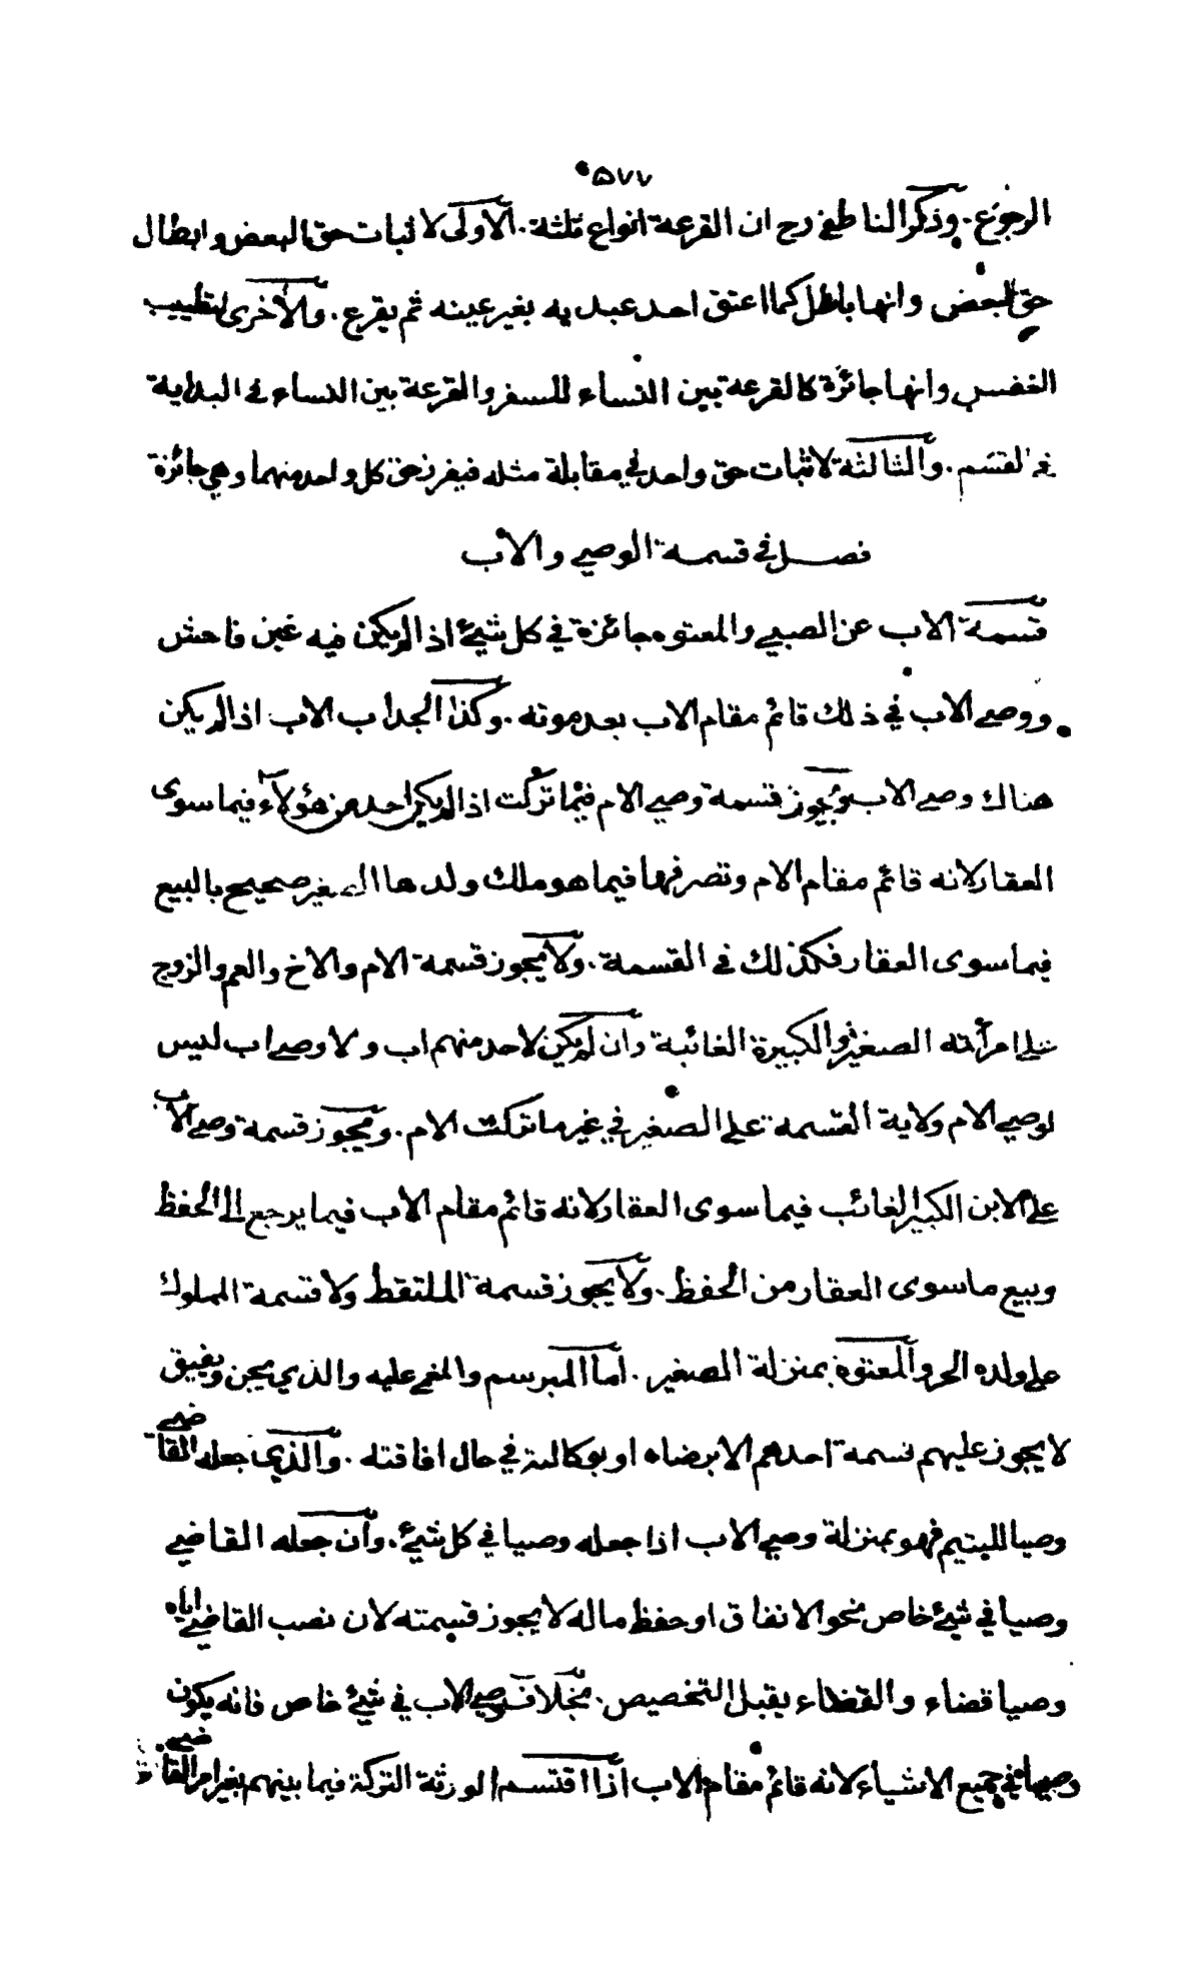 ٥٧٧
الرجوع. وذكر الناطفي رح ان القرعة انواع ثلثة. الاولى لاثبات حق البعض وابطال
حق البعض وانها باطل كما اعتق احد عبديه بغير عينه ثم يقرع. والاخرى لتطييب
النفس وانها جائزة كالقرعة بين النساء للسفر والقرعة بين النساء في البداية
في القسم. والثالثة لاثبات حق واحد في مقابلة مثله فيفرز حق كل واحد منهما وهي جائزة
فصل في قسمة الوصي والاب
قسمة الاب عن الصبي والمعتوه جائزة في كل شيئ اذا لم يكن فيه غبن فاحش
ووصي الاب في ذلك قائم مقام الاب بعد موته. وكذا الجد اب الاب اذا لم يكن
هناك وصي الاب ويجوز قسمة وصي الام فيما تركت اذا لم يكن احد من هؤلاء فيما سوى
العقار لانه قائم مقام الام وتصرفها فيما هو ملك ولدها الصغير صحيح بالبيع
فيما سوى العقار فكذلك في القسمة. ولا يجوز قسمة الام والاخ والعم والزوج
على امرأته الصغيرة والكبيرة الغائبة وان لم يكن لاحد منهم اب ولا وصي اب ليس
لوصي الام ولاية القسمة على الصغير في غير ما تركت الام. ويجوز قسمة وصي الاب
على الابن الكبير الغائب فيما سوى العقار لانه قائم مقام الاب فيما يرجع الى الحفظ
وبيع ما سوى العقار من الحفظ. ولا يجوز قسمة الملتقط ولا قسمة المملوك
على ولده الحر والمعتوه بمنزلة الصغير. اما المبرسم والمغمى عليه والذي يجن ويفيق
لا يجوز عليهم قسمة احدهم الا برضاه او بوكالته في حال افاقته. والذي جعله القاضي
وصيا لليتيم فهو بمنزلة وصي الاب اذا جعله وصيا في كل شيئ. وان جعله القاضي
وصيا في شيئ خاص نحو الانفاق او حفظ ماله لا يجوز قسمته لان نصب القاضي اياه
وصيا قضاء والقضاء يقبل التخصيص. بخلاف وصي الاب في شيئ خاص فانه يكون
وصيا في جميع الاشياء لانه قائم مقام الاب اذا اقتسم الورثة التركة فيما بينهم بغير امر القاضي